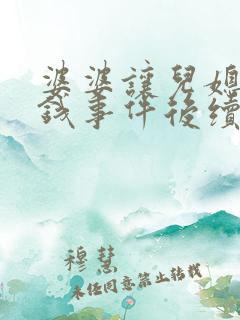 婆婆讓兒媳
錢事件後續
穆慧
未經同意禁止轉載